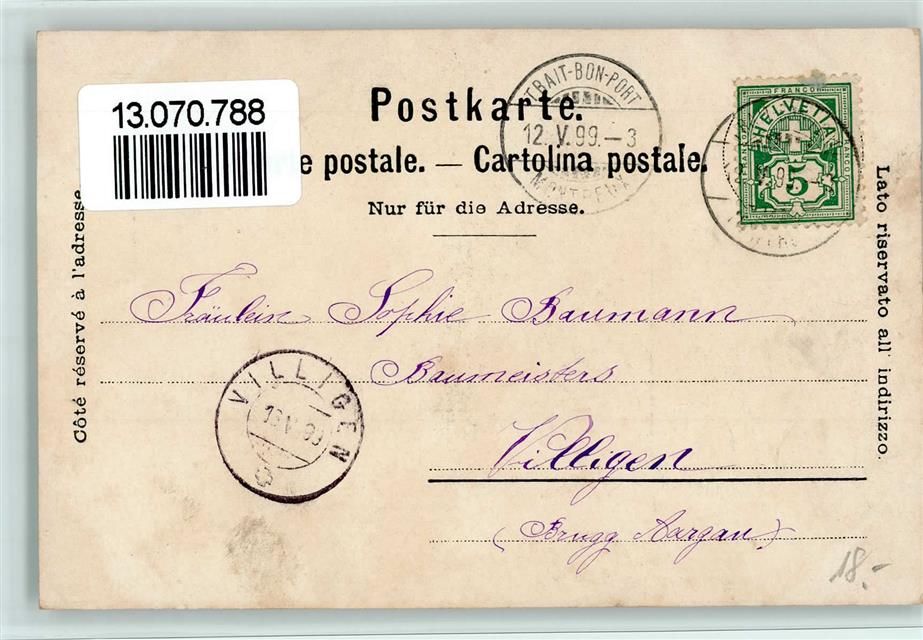 13.070.788
Postkarte.
postale. — Cartolina postale.
Nur für die Adresse.
Côté réservé à l'adresse
Lato riservato all' indirizzo.
TRAIT-BON-PORT
12.V.99.-3
MONTREUX
FRANCO
HELVETIA
FRANCO
FRANCO
5
Fräulein Sophie Baumann
Baumeisters
Villigen
(Brugg Aargau)
VILLIGEN
18.-